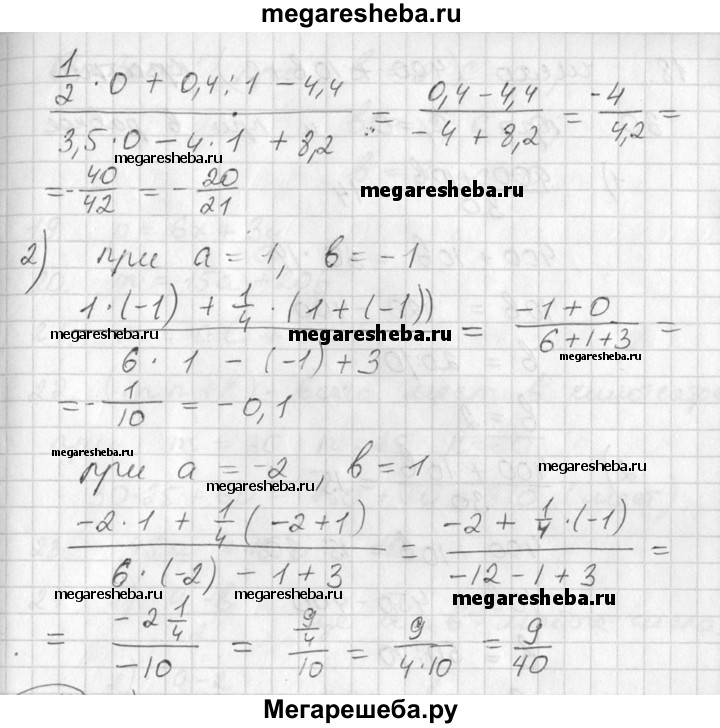 megaresheba.ru
1/2 · 0 + 0,4 : 1 − 4,4 / 3,5 · 0 − 4 · 1 + 8,2 = 0,4 − 4,4 / −4 + 8,2 = −4 / 4,2 =
megaresheba.ru
megaresheba.ru
= − 40/42 = − 20/21
megaresheba.ru
2) при a = 1, b = −1
1 · (−1) + 1/4 · (1 + (−1)) / 6 · 1 − (−1) + 3 = −1 + 0 / 6 + 1 + 3 =
megaresheba.ru
megaresheba.ru
megaresheba.ru
= − 1/10 = −0,1
megaresheba.ru
при a = −2, b = 1
megaresheba.ru
megaresheba.ru
−2 · 1 + 1/4 (−2 + 1) / 6 · (−2) − 1 + 3 = −2 + 1/4 · (−1) / −12 − 1 + 3 =
megaresheba.ru
megaresheba.ru
megaresheba.ru
= −2 1/4 / −10 = 9/4 / 10 = 9 / 4 · 10 = 9/40
Мегарешеба.ру